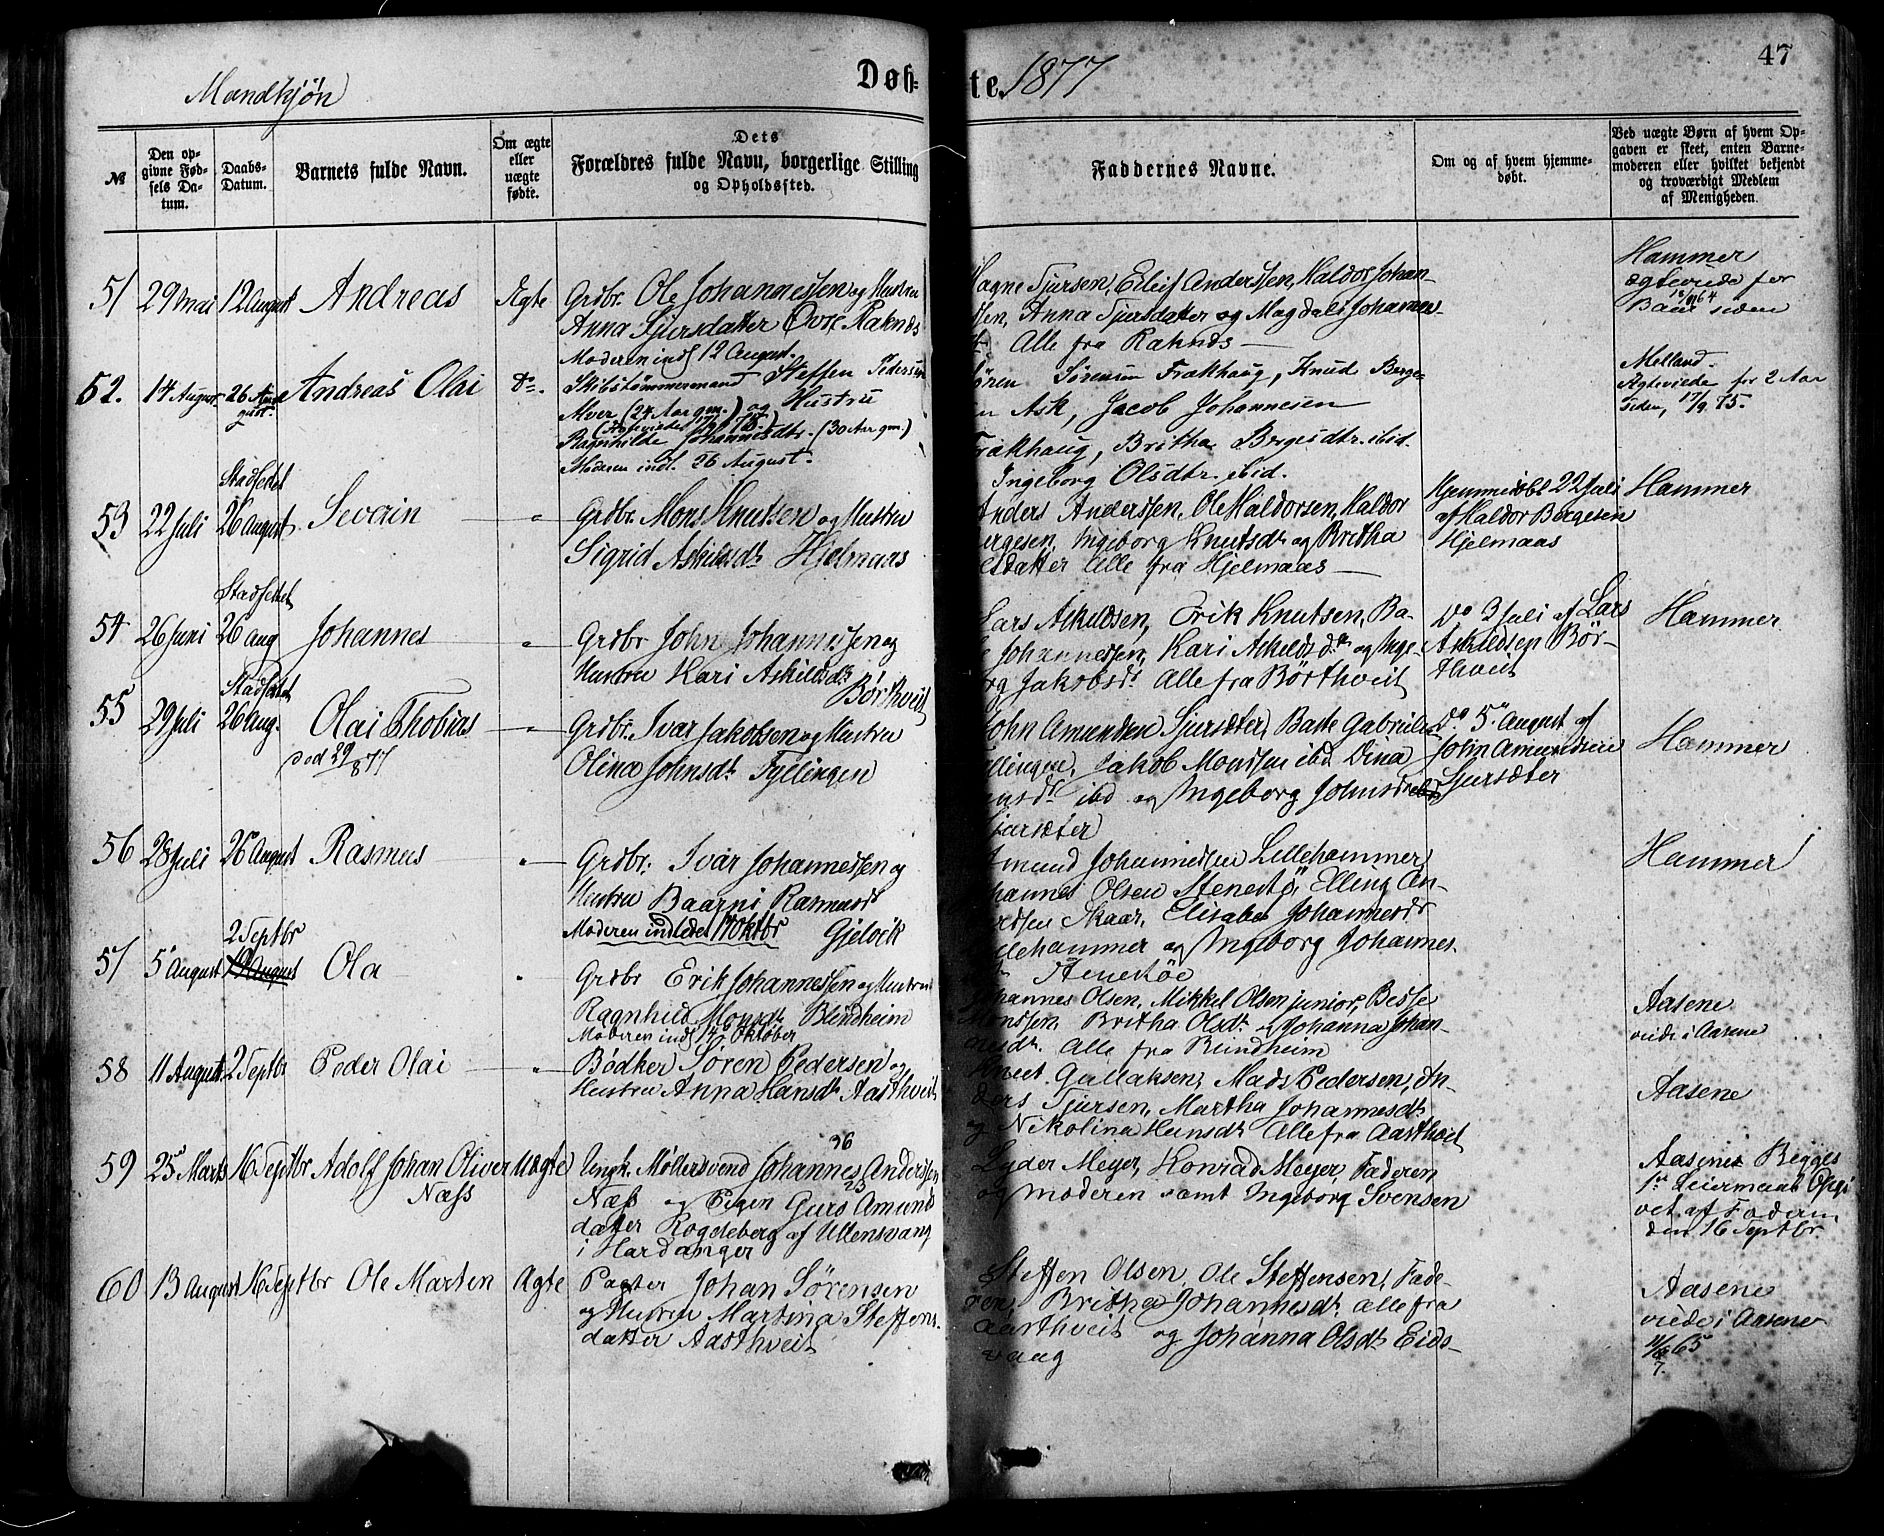 47
Mandkjøn
Døb=
te. 1877
№
Den op-
givne Fød-
sels Da-
tum.
Daabs-
Datum.
Barnets fulde Navn.
Om ægte
eller
uægte
fødte.
Dets
Forældres fulde Navn, borgerlige Stilling
og Opholdssted.
Faddernes Navne.
Om og af hvem hjemme-
døbt.
Ved uægte Børn af hvem Op-
gaven er skeet, enten Barne-
moderen eller hvilket bekjendt
og troværdigt Medlem
af Menigheden.
51 29 Mai 12 August Andreas Ægte
Grdbr. Ole Johannessen og Hustru
Anna Sjursdatter Øvre Raknes
Moderen indl 12 August.
Magne Sjursen, Eilif Anderssen, Haldor Johan-
ssen, Anna Sjursdatter og Magdeli Johannes-
Alle fra Raknes
Hammer
ægteviede for
Baar siden
52. 14 August 26 Au-
gust. Andreas Olai Do.
Skibstømmermand Steffen Pedersen
Mver (24 Aar gm.) og Hustru
(Ægteviede 17/9 75.)
Ragnhilde Johannesdtr. (30 Aar gm.)
Moderen indl. 26 August.
Søren Sørensen Frakhaug, Knud Berge-
en Ask, Jacob Johannesen
Frakhaug, Britha Bergesdtr. ibid.
Ingeborg Olsdtr. ibid.
Melland.
Ægteviede for 2 Aar
siden, 17/9 75.
53 22 Juli Stadfestet
26 August Severin "
Grdbr. Mons Knutsen og Hustru
Sigrid Askildsdr Hjelmaas
Anders Anderssen, Ole Haldorsen, Haldor
Bergesen, Ingeborg Knutsdr og Britha
Olsdatter Alle fra Hjelmaas
Hjemmedøbt 22 Juli
af Haldor Bergesen
Hjelmaas
Hammer
54 26 Juni Stadfestet
26 aug Johannes "
Grdbr John Johannessen og
Hustru Kari Askildsdr
Børthveit
Lars Askildsen, Erik Knutsen, Ba-
Johannessen, Kari Askildsdr og Inge-
borg Jakobsdr Alle fra Børthveit
Do 3 Juli af Lars
Askildsen Bør-
thveit
Hammer
55 29 Juli Stadfestet
26 Aug. Olai Thobias "
død 29/8 77
Grdbr. Ivar Jakobsen og Hustru
Olina Johnsdr Fyllingen
John Amundsen Sjursæter, Baste Gabrielsen
Fyllingen, Jakob Monssen ibd Dina
ensdr ibd og Ingeborg Johnsdr
Sjursæter
Do 5 August af
John Amundsen
Sjursæter
Hammer
56 28 Juli 26 August Rasmus "
Grdbr. Ivar Johannessen og
Hustru Baarni Rasmusdr
Moderen indledet 14 Oktbr Gjelvik
Amund Johannessen Lillehammer,
Johannes Olsen Stenestø, Elling An-
derssen Skaar, Elisabe Johannesdr
Lillehammer og Ingeborg Johannes-
dr Stenestøe
Hammer
57 5 August 2 Septbr
19 August Ola "
Grdbr Erik Johannessen og Hustru
Ragnhild Monsdr Blindheim
Moderen indl 14 Oktober
Johannes Olsen, Mikkel Olsen junior, Besse
Monssen, Britha Olsdr og Johanna Johan-
nesdr. Alle fra Blindheim
Aasene
viede i Aasene
58 11 August 2 Septbr Peder Olai "
Bødker Søren Pedersen og
Hustru Anna Hansdr Aasthveit
Knut Gullaksen, Mads Pedersen, An-
ders Sjursen, Martha Johannesdr
og Nikolina Hansdr Alle fra Aasthveit
Aasene
59 25 Marts 16 Septbr Adolf Johan Oliver
Næss Uægte
Ungk. Møllersvend Johannes Anderssen 26
Næss og Pigen Guro Amunds 23
datter Rogdeberg af Ullensvang
i Hardanger
Lyder Meyer, Konrad Meyer, Faderen
og Moderen samt Ingeborg Svensen
Aasene Begges
1ste Leiermaal Opgi
vet af Faderen
den 16 Septbr.
60 13 August 16 Septbr Ole Marten Ægte
Pagter Johan Sørensen
og Hustru Martina Steffens
datter Aasthveit
Steffen Olsen, Ole Steffensen, Fade-
ren, Britha Johannesdr, alle fra
Aasthveit og Johanna Olsdr Eids-
vaag
Aasene
viede i Aasene